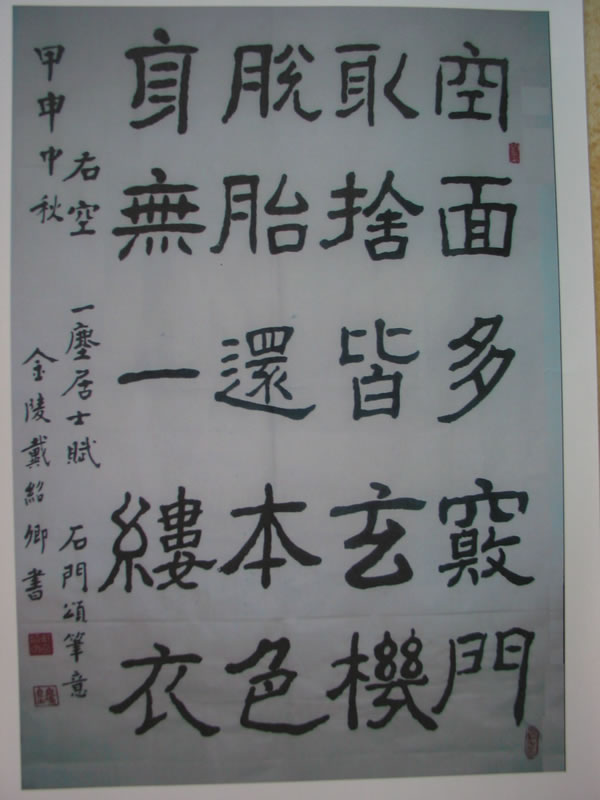 空面多竅門
取捨皆玄機
脫胎還本色
身無一縷衣
右空 一塵居士賦 石門頌筆意
甲申中秋 金陵戴紹卿書